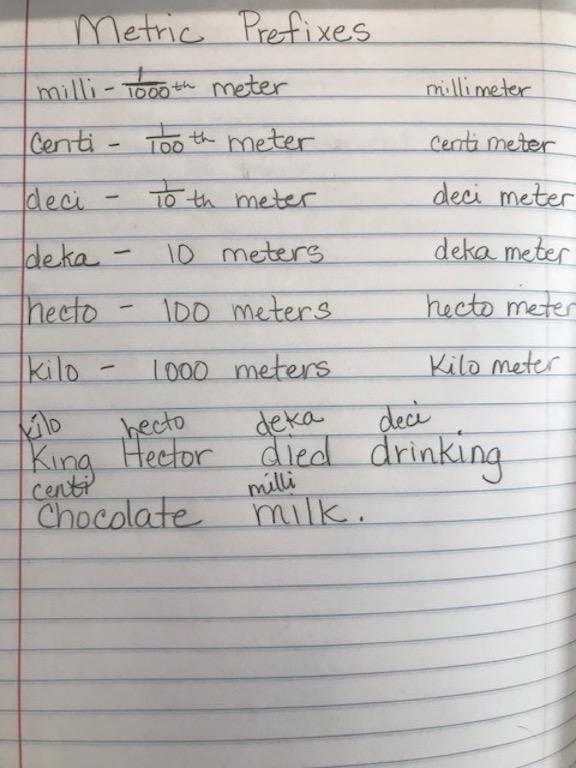 Metric Prefixes
milli - 1/1000 th meter millimeter
Centi - 1/100 th meter centi meter
deci - 1/10 th meter deci meter
deka - 10 meters deka meter
hecto - 100 meters hecto meter
kilo - 1000 meters Kilo meter
kilo hecto deka deci
King Hector died drinking
centi milli
Chocolate milk.